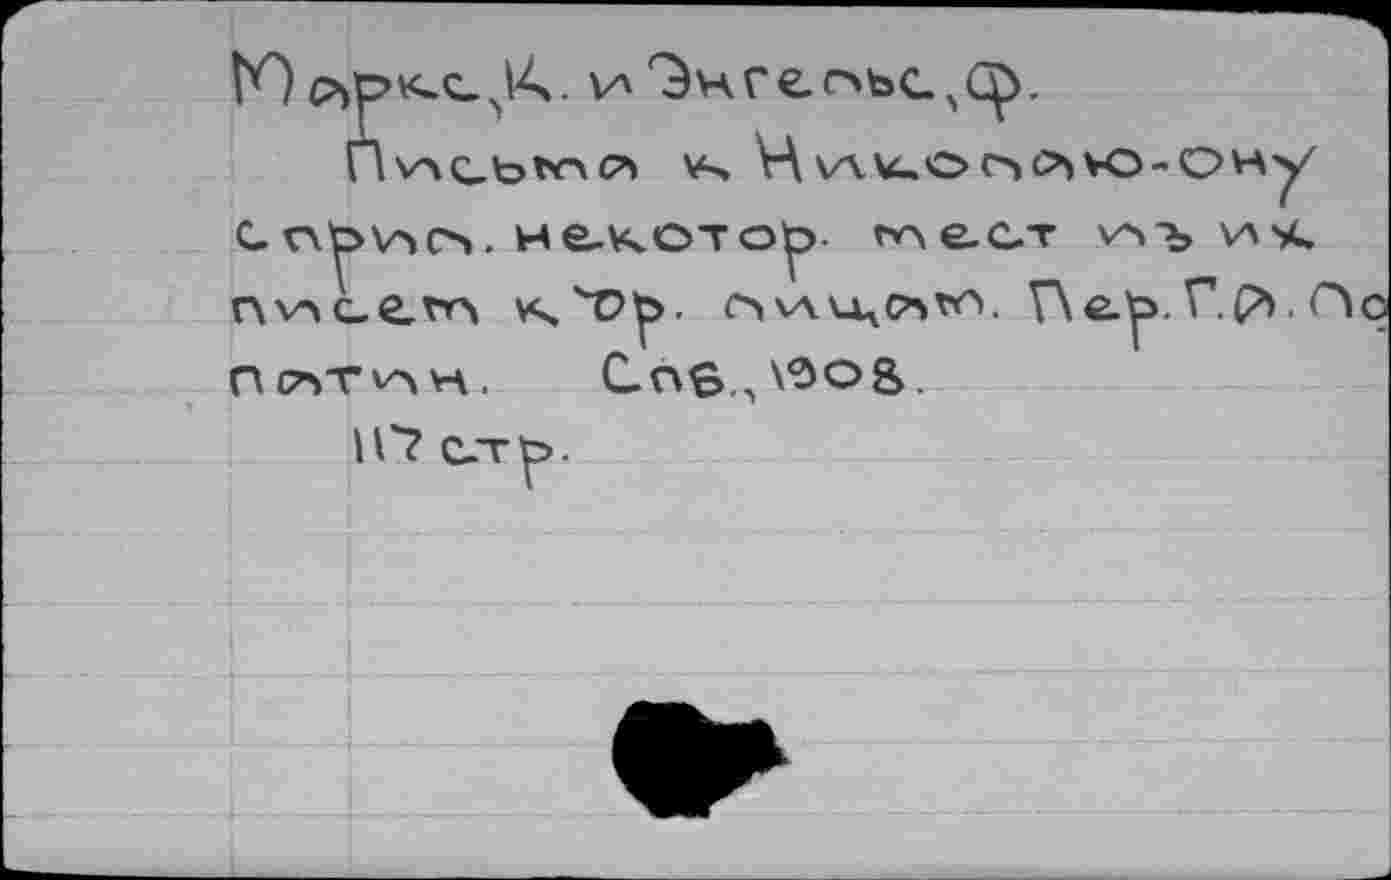 Маркс, К. и Энгельс, Ф.
Письма к Николаю-ону
с прил. некотор. мест изъ их
писем к др. лицам. Пер. Г.А. Ло
патин. Спб., 1908.
117 стр.